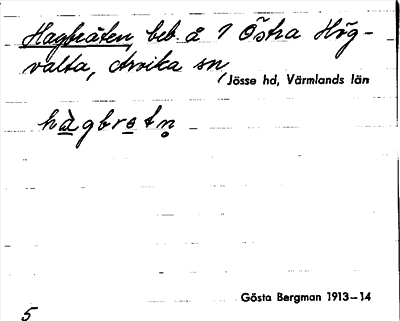 Hagbråten, beb. å 7 Östra Hög-
valta, Arvika sn,
Jösse hd, Värmlands län
hàgbrotn̥
Gösta Bergman 1913-14
5